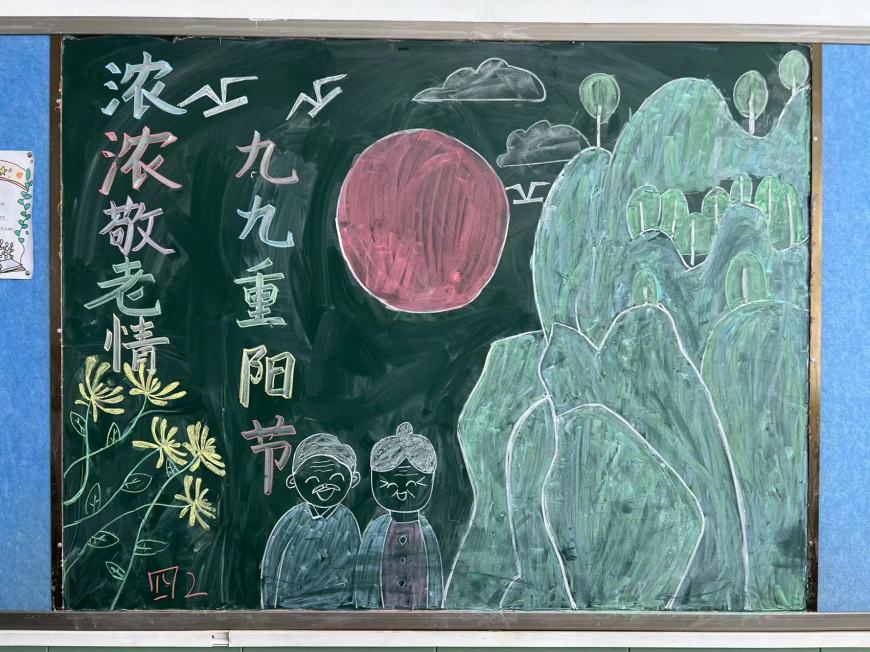 九九重阳节
浓浓敬老情
四2